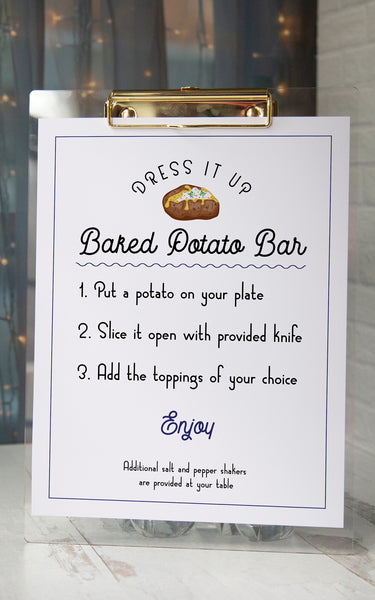 DRESS IT UP
Baked Potato Bar
1. Put a potato on your plate
2. Slice it open with provided knife
3. Add the toppings of your choice
Enjoy
Additional salt and pepper shakers
are provided at your table